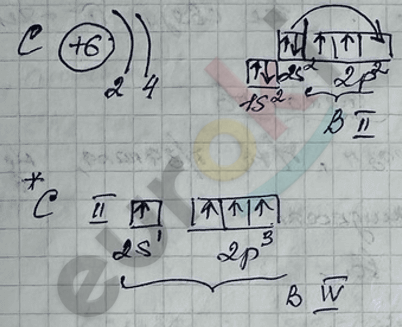 C +6 2 4
↑↓ ↑ ↑
↑↓ 2s² 2p²
1s²
В II
*C II ↑ ↑ ↑ ↑
2s¹ 2p³
В IV
euroki